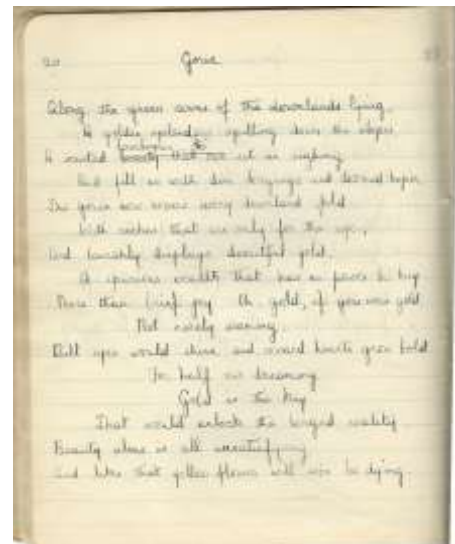 20 Gorse
Along the green arms of the downlands lying
A golden splendour spilling down the slopes
loveliness to
A wasted beauty that set us sighing
And fill us with dim longings and desired hopes
The gorse now every downland fold
With riches that are only for the eye,
And lavishly displays deceitful gold.
A spurious wealth that has no power to buy
More than brief joy. Oh gold, if you were gold
Not merely seeming,
Dull eyes would shine and scared hearts grow bold
In half our dreaming
Gold is the key
That would unlock the longed reality
Beauty alone is all unsatisfying
And like that yellow flower will soon be dying.